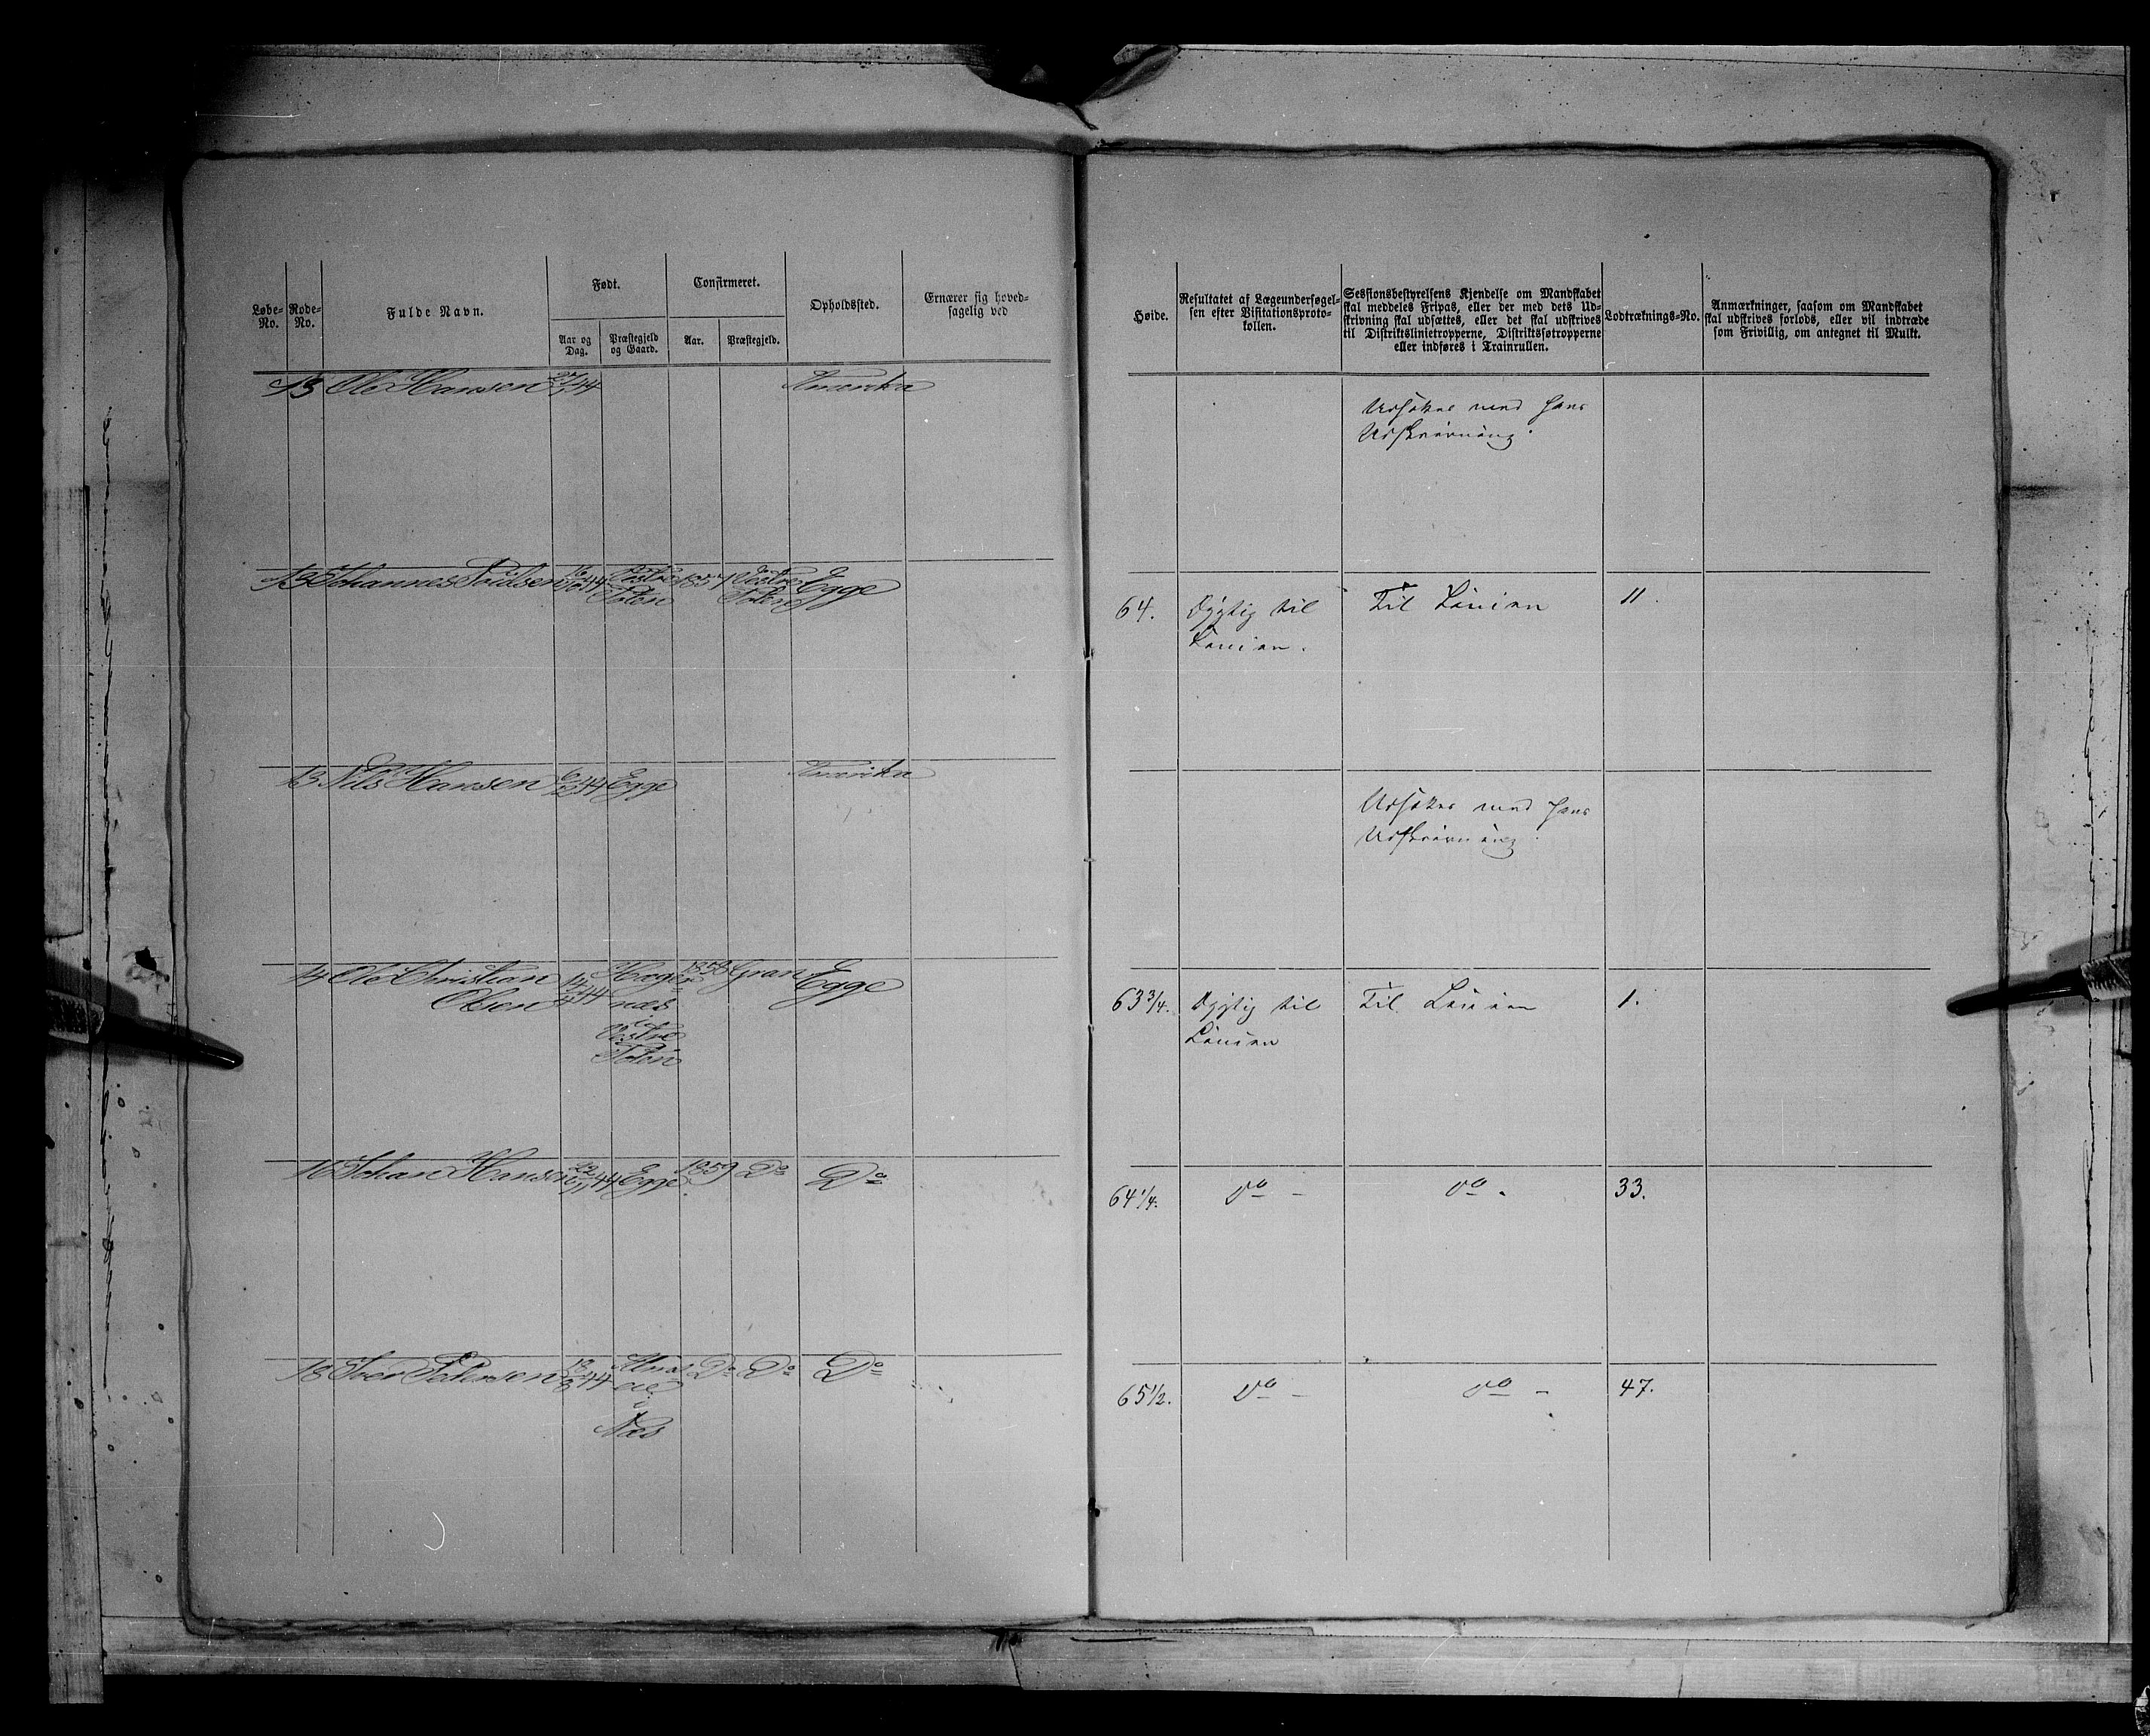 Løbe-No.
Rode-No.
Fulde Navn.
Født.
Aar og Dag.
Præstegjeld og Gaard.
Confirmeret.
Aar.
Præstegjeld.
Opholdssted.
Ernærer sig hoved-
sagelig ved
Høide.
Resultatet af Lægeundersøgel-
sen efter Visitationsproto-
kollen.
Sessionsbestyrelsens Kjendelse om Mandskabet
skal meddeles Fripas, eller der med dets Ud-
skrivning skal udsættes, eller det skal udskrives
til Distriktslinietropperne, Distriktssøtropperne
eller indføres i Trainrullen.
Lodtræknings-No.
Anmærkninger, saasom om Mandskabet
skal udskrives forlods, eller vil indtræde
som Frivillig, om antegnet til Mulkt.
13 Ole Hansen 27/1 44 Amerika
Udsættes med hans
Udskrivning.
13 Johannes Poulsen 16/10 44 Vestre Toten Vestre Toten Egge
64. Dygtig til
Linien.
Til Linien 11.
13 Nils Hansen 6/2 44 Egge Amerika
Udsættes med hans
Udskrivning.
14 Ole Christian
Olsen 44 Hager
næs
i
Vestre
Toten
1858 Gran Egge
63 3/4. Dygtig til
Linien
Til Linien 1.
16 Johan Hansen 22/11 44 Egge 1859 Do Do
64 1/4. Do - Do. 33.
18 Iver Pedersen 18/8 44
eie
i
Næs
Do Do Do
65 1/2. Do - Do - 47.